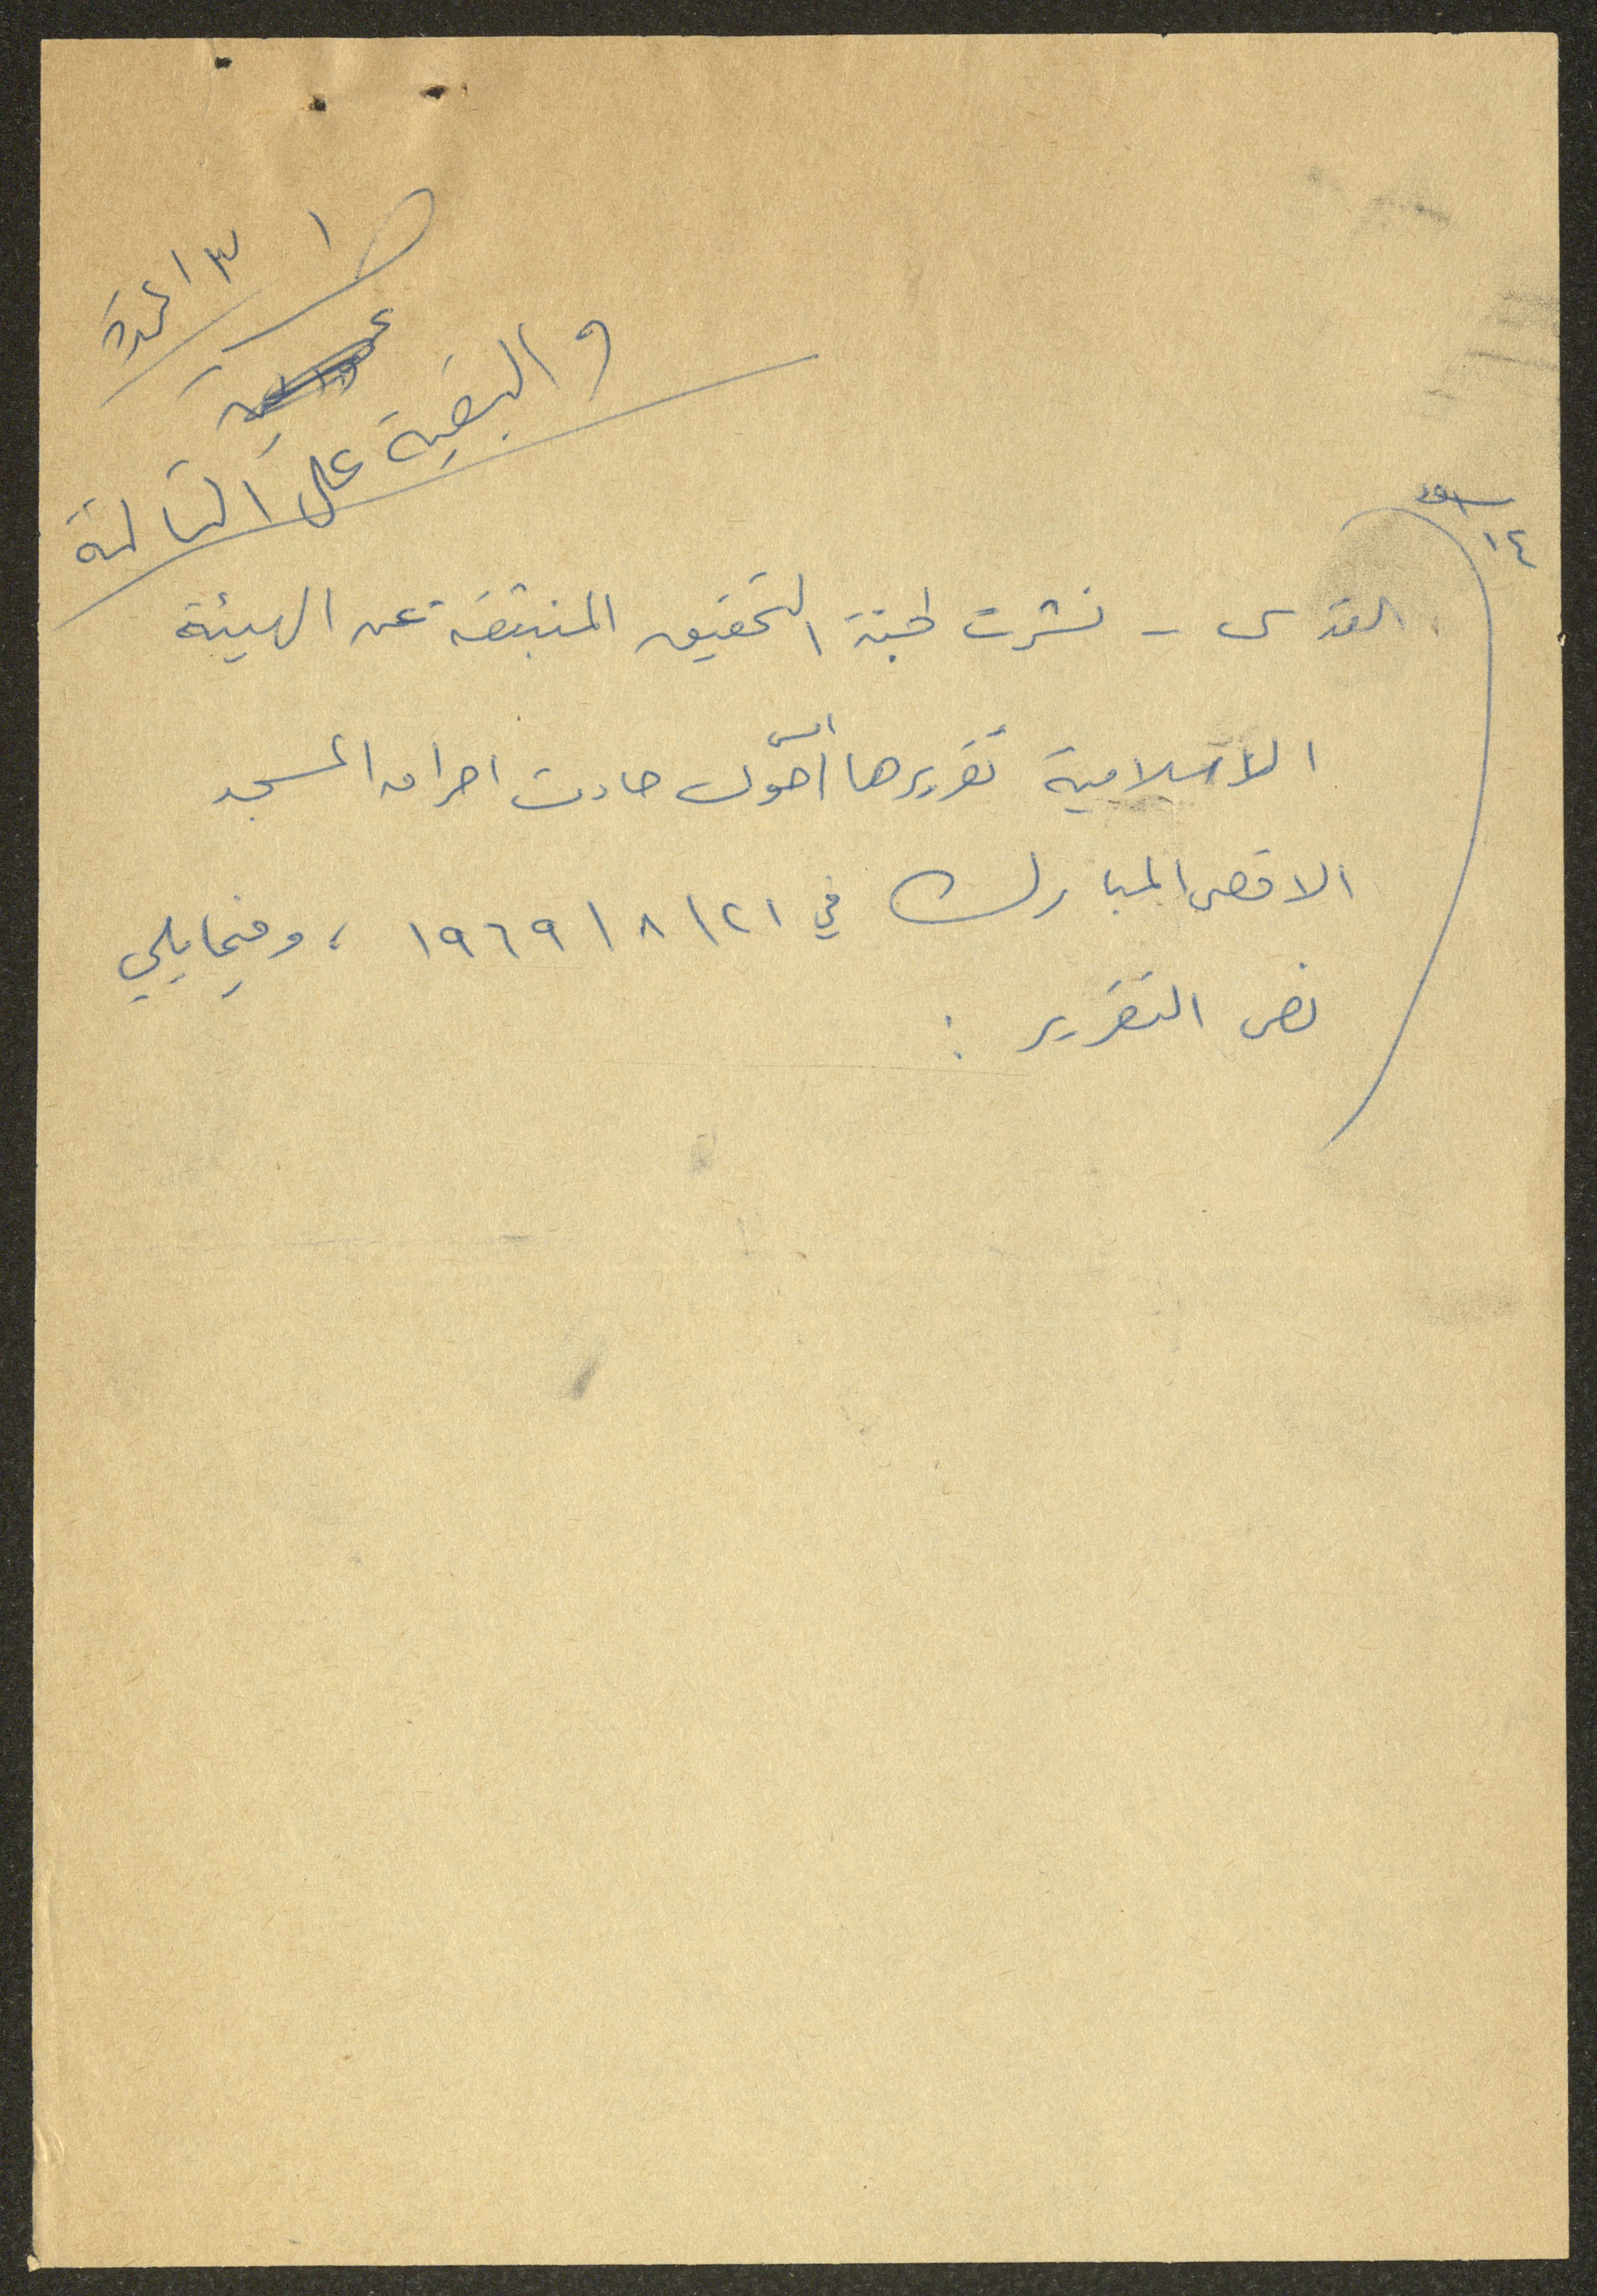 ص ١
٣ اعمدة
والبقية على الثالثة
١٤
القدس - نشرت لجنة التحقيق المنبثقة عن الهيئة
الاسلامية تقريرها امس حول حادث احراق المسجد
الاقصى المبارك في ٢١/٨/١٩٦٩ ، وفيما يلي
نص التقرير :